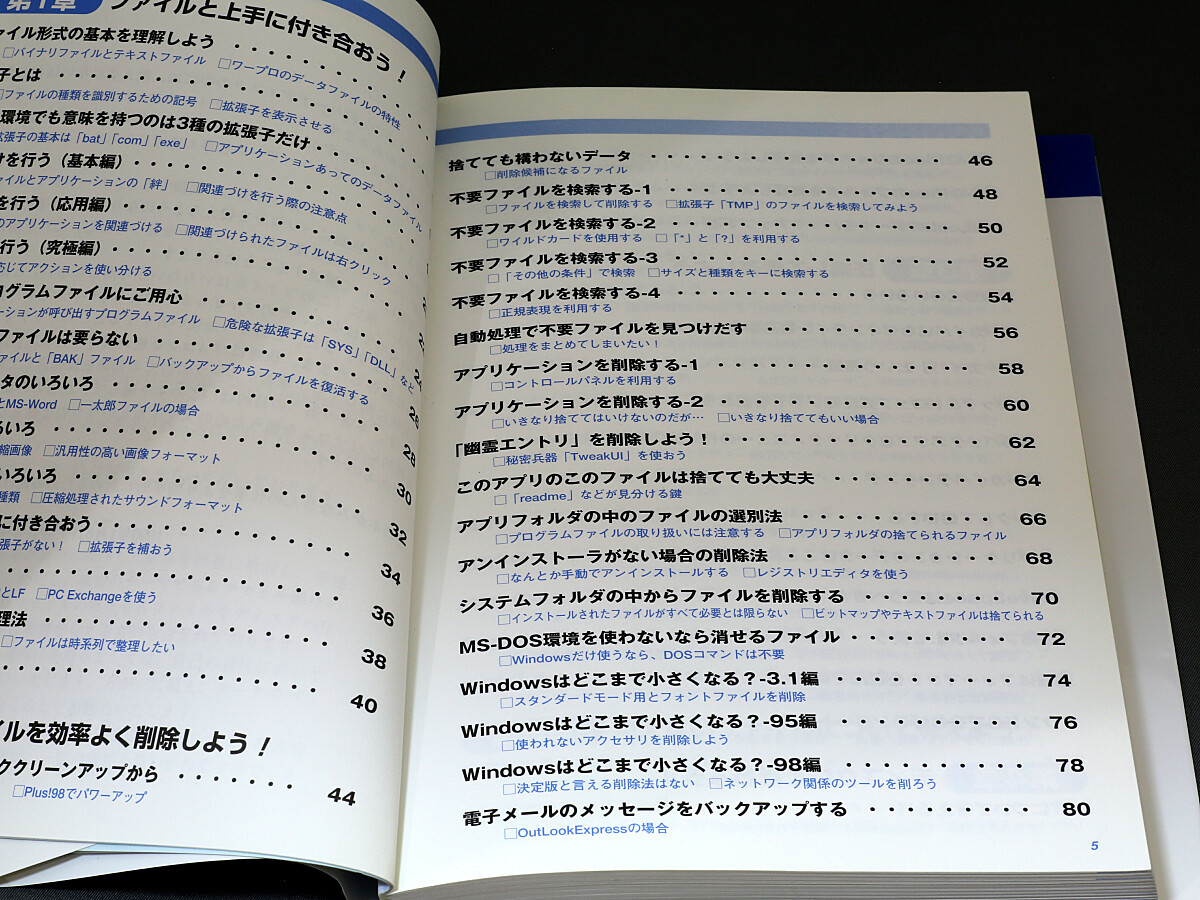 第1章 ファイルと上手に付き合おう！
ァイル形式の基本を理解しよう
□バイナリファイルとテキストファイル □ワープロのデータファイルの特性
子とは
□ファイルの種類を識別するための記号 □拡張子を表示させる
環境でも意味を持つのは3種の拡張子だけ
拡張子の基本は「bat」「com」「exe」 □アプリケーションあってのデータファイル
けを行う（基本編）
ァイルとアプリケーションの「絆」 □関連づけを行う際の注意点
を行う（応用編）
のアプリケーションを関連づける □関連づけられたファイルは右クリック
行う（究極編）
応じてアクションを使い分ける
ログラムファイルにご用心
ーションが呼び出すプログラムファイル □危険な拡張子は「SYS」「DLL」など
ファイルは要らない
ァイルと「BAK」ファイル □バックアップからファイルを復活する
タのいろいろ 26
とMS-Word □一太郎ファイルの場合
ろいろ 28
縮画像 □汎用性の高い画像フォーマット
いろいろ 30
種類 □圧縮処理されたサウンドフォーマット
に付き合おう 32
張子がない！ □拡張子を補おう
34
とLF □PC Exchangeを使う
理法 36
□ファイルは時系列で整理したい
38
40
イルを効率よく削除しよう！
ククリーンアップから 44
□Plus!98でパワーアップ
捨てても構わないデータ 46
□削除候補になるファイル
不要ファイルを検索する-1 48
□ファイルを検索して削除する □拡張子「TMP」のファイルを検索してみよう
不要ファイルを検索する-2 50
□ワイルドカードを使用する □「*」と「?」を利用する
不要ファイルを検索する-3 52
□「その他の条件」で検索 □サイズと種類をキーに検索する
不要ファイルを検索する-4 54
□正規表現を利用する
自動処理で不要ファイルを見つけだす 56
□処理をまとめてしまいたい！
アプリケーションを削除する-1 58
□コントロールパネルを利用する
アプリケーションを削除する-2 60
□いきなり捨ててはいけないのだが… □いきなり捨ててもいい場合
「幽霊エントリ」を削除しよう！ 62
□秘密兵器「TweakUI」を使おう
このアプリのこのファイルは捨てても大丈夫 64
□「readme」などが見分ける鍵
アプリフォルダの中のファイルの選別法 66
□プログラムファイルの取り扱いには注意する □アプリフォルダの捨てられるファイル
アンインストーラがない場合の削除法 68
□なんとか手動でアンインストールする □レジストリエディタを使う
システムフォルダの中からファイルを削除する 70
□インストールされたファイルがすべて必要とは限らない □ビットマップやテキストファイルは捨てられる
MS-DOS環境を使わないなら消せるファイル 72
□Windowsだけ使うなら、DOSコマンドは不要
Windowsはどこまで小さくなる？-3.1編 74
□スタンダードモード用とフォントファイルを削除
Windowsはどこまで小さくなる？-95編 76
□使われないアクセサリを削除しよう
Windowsはどこまで小さくなる？-98編 78
□決定版と言える削除法はない □ネットワーク関係のツールを削ろう
電子メールのメッセージをバックアップする 80
□OutLookExpressの場合
5